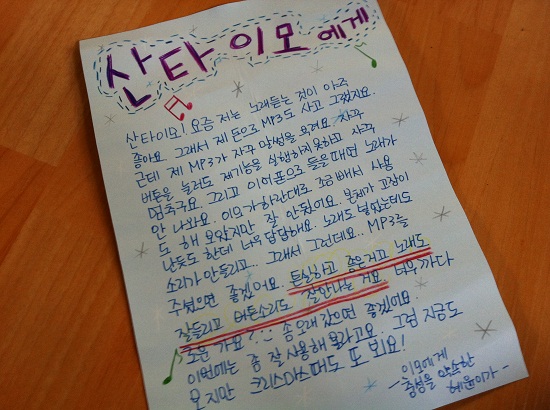 산타이모에게
산타이모! 요즘 저는 노래듣는 것이 아주
좋아요. 그래서 제 돈으로 MP3도 사고 그랬지요.
근데 제 MP3가 자꾸 말썽을 부려요. 자꾸
버튼을 눌러도 제기능을 실행하지못하고 자꾸
멈춰요. 그리고 이어폰으로 들을때면 노래가
안 나와요. 이모가 하란대로 조금 빼서 사용
도 해 보았지만 잘 안됬어요. 본체가 고장이
난듯도 한데 너무 답답해요. 노래도 넣었는데도
소리가 안들리고.. 그래서 그런데요.. MP3를
주셨으면 좋겠어요. 튼실하고 좋은거고 노래도
잘들리고 버튼소리도 잘안나는 거요. 너무 까다
로운 가요? 좀 오래갔으면 좋겠어요.
이번에는 좀 잘 사용해 볼라고요.. 그럼 지금도
보지만 크리스마스때도 또 봐요!
이모에게
충성을 약속한
- 혜윤이가 -